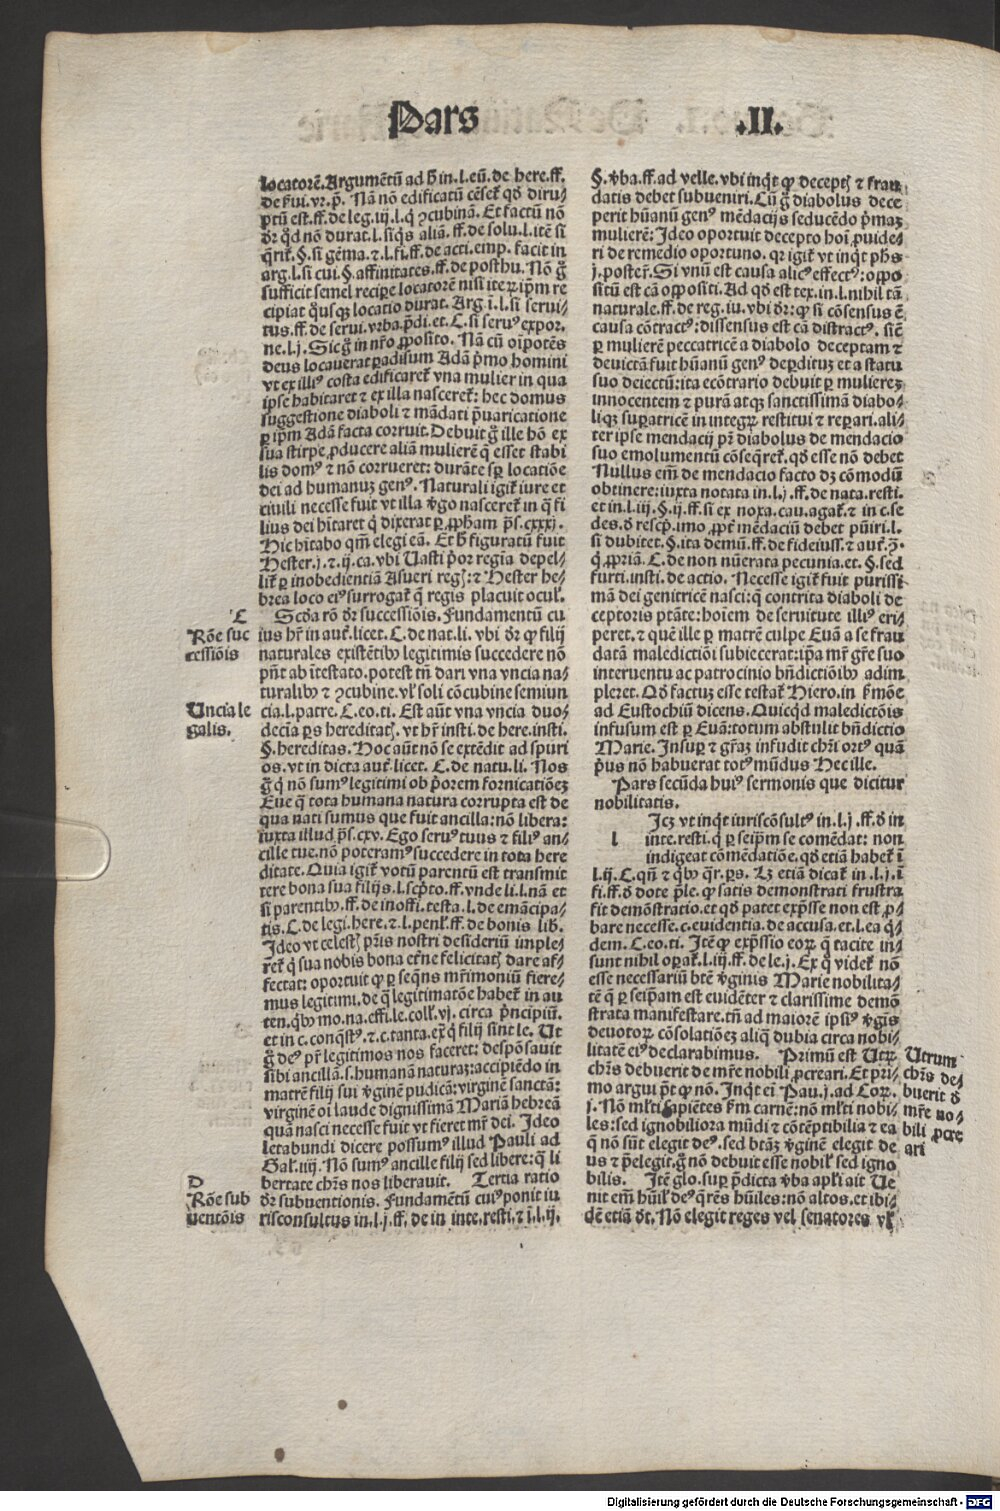 Pars .II.
locatorē. Argumētū ad h̄ in. l. eū. de here. ff.
de ẜui. vr. p̄. Nā nō edificatū cēseť qď diru⸗
ptū est. ff. de leg. iij. l. q̄ ꝯcubinā. Et factū nō
ďr q̇d nō durat. l. siq̇s aliā. ff. de solu. l. itē si
q̄rit. §. si gēma. ⁊ l. fi. ff. de acti. emp. facit in
arg. l. si cui. §. affinitates. ff. de posthu. Nō g̊
sufficit semel reciꝑe locatorē nisi iteꝝ ip̄m re
cipiat q̊usqꝫ locatio durat. Arg. ī. l. si serui⸗
tus. ff. de serui. vrba. p̄di. et. C. si seruꝰ expor.
ne. l. j. Sic g̊ in nr̄o ꝓposito. Nā cū oīpotēs
deus locauerat ꝑadisum Adā p̄mo homini
vt ex illiꝰ costa edificareť vna mulier in qua
ipse habitaret ⁊ ex illa nascereť: hec domus
suggestione diaboli ⁊ mādati p̄uaricatione
ꝑ ip̄m Adā facta corruit. Debuit g̊ ille hō ex
sua stirpe ꝓducere aliā mulierē q̄ esset stabi
lis domꝰ ⁊ nō corrueret: durāte sꝑ locatiōe
dei ad humanuꝫ genꝰ. Naturali igiť iure et
ciuili necesse fuit vt illa v̓go nascereť in q̄ fi
lius dei hītaret q̇ dixerat ꝑ ꝓph̄am p̄s. cxxxj.
Hic hītabo qm̄ elegi eā. Et h̄ figuratū fuit
Hester. j. ⁊ ij. ca. vbi Uasti p̓or regīa depel⸗
liť ꝑ inobedientiā Asueri regꝭ: ⁊ Hester he⸗
brea loco eiꝰ surrogať q̄ regis placuit ocuł.
C
Rōe suc
cessiōis
Scďa rō ďr successiōis. Fundamentū cu
ius hr̄ in auť. licet. C. de nat. li. vbi ďr ꝙ filij
naturales existētibꝰ legitimis succedere nō
pn̄t ab ītestato. potest tn̄ dari vna vncia na
turalibꝰ ⁊ ꝯcubine. vł soli cōcubine semiun
Uncia le
galis.
cia. l. patre. C. eo. ti. Est aūt vna vncia duo⸗
decīa ꝑs hereditatꝭ. vt hr̄ insti. de here. insti.
§. hereditas. Hoc aūt nō se extēdit ad spuri
os. vt in dicta auť. licet. C. de natu. li. Nos
g̊ q̇ nō sumꝰ legitimi ob p̓orem fornicatiōeꝫ
Eue q̄ tota humana natura corrupta est de
qua nati sumus que fuit ancilla: nō libera:
iuxta illud p̄s. cxv. Ego seruꝰ tuus ⁊ filiꝰ an⸗
cille tue. nō poteramꝰ succedere in tota here
ditate. Quia igiť votū parentū est transmit
tere bona sua filijs. l. scp̄to. ff. vnde li. l. nā et
si parentibꝰ. ff. de inoffi. testa. l. de emācipa⸗
tis. C. de legi. here. ⁊ l. penł. ff. de bonis lib.
Ideo vt celestꝭ pr̄is nostri desideriū imple⸗
reť q̇ sua nobis bona et̓ne felicitatꝭ dare af⸗
fectat: oportuit ꝙ ꝑ seq̄ns mr̄imoniū fiere⸗
mus legitimi. de q̄ legitimatōe habeť in au
ten. q̇bꝰ mo. na. effi. le. coll. vj. circa p̄ncipiū.
et in c. conq̄stꝰ. ⁊ c. tanta. extͣ q̇ filij sint le. Ut
g̊ deꝰ pr̄ legitimos nos faceret: despōsauit
sibi ancillā. s. humanā naturaꝫ: accipiēdo in
matrē filij sui v̓ginē pudicā: virginē sanctā:
virginē oi laude dignissimā Mariā hebreā
quā nasci necesse fuit vt fieret mr̄ dei. Ideo
letabundi dicere possumꝰ illud Pauli ad
Gal. iiij. Nō sumꝰ ancille filij sed libere: q̄ li
bertate chr̄s nos liberauit. Tertia ratio
D
Rōe sub
uentōis
ďr subuentionis. Fundamētū cuiꝰ ponit iu
risconsultus in. l. j. ff. de in inte. resti. ⁊ ī. l. ij.
§. v̓ba. ff. ad velle. vbi inq̇t ꝙ deceptꝭ ⁊ frau
datis debet subueniri. Cū g̊ diabolus dece
perit hūanū genꝰ mēdacijs seducēdo p̄maꝫ
mulierē: Ideo oportuit decepto hoī ꝓuide⸗
ri de remedio oportuno. qr igiť vt inq̇t ph̄s
j. posterͭ. Si vnū est causa alicꝰ effectꝰ: oppo
sitū est cā oppositi. Ad qď est tex. in. l. nihil tā
naturale. ff. de reg. iu. vbi ďr: ꝙ si cōsensus ē
causa cōtractꝰ: dissensus est cā distractꝰ. sic̄
ꝑ mulierē peccatricē a diabolo deceptam ⁊
deuictā fuit hūanū genꝰ deꝑdituꝫ et a statu
suo deiectū: ita ecōtrario debuit ꝑ mulierez
innocentem ⁊ purā atqꝫ sanctissimā diabo⸗
liqꝫ suꝑatricē in integꝝ restitui ⁊ reꝑari. ali⸗
ter ipse mendacij pr̄ diabolus de mendacio
suo emolumentū cōseq̄reť. qď esse nō debet
Nullus em̄ de mendacio facto dꝫ cōmodū
obtinere: iuxta notata in. l. j. ff. de nata. resti.
et in. l. iij. §. ij. ff. si ex noxa. cau. agať. ⁊ in c. se
des. ď rescp̄. imo ꝓpt̓ mēdaciū debet pūiri. l.
si dubitet. §. ita demū. ff. de fideiuss. ⁊ auť. p̄.
q̇ ꝓpriā. C. de non nūerata pecunia. et. §. sed
furti. insti. de actio. Necesse igiť fuit purissi
mā dei genitricē nasci: q̄ contrita diaboli de
ceptoris ptāte: hoīem de seruitute illiꝰ eri⸗
peret. ⁊ quē ille ꝑ matrē culpe Euā a se frau
datā maledictiōi subiecerat: ipa mr̄ gr̄e suo
interuentu ac patrocinio bn̄dictiōibꝰ adim
pleret. Qď factuꝫ esse testať Hiero. in ẜmōe
ad Eustochiū dicens. Quicq̇d maledictōis
infusum est ꝑ Euā: totum abstulit bn̄dictio
Marie. Insuꝑ ⁊ gr̄az infudit chr̄i ortꝰ quā
p̓us nō habuerat totꝰ mūdus Hec ille.
Pars secūda huiꝰ sermonis que dicitur
nobilitatis.
l
Icꝫ vt inq̇t iuriscōsultꝰ in. l. j. ff. ď in
inte. resti. q̇ ꝑ seip̄m se comēdat: non
indigeat cōmēdatiōe. qď etiā habeť ī
l. ij. C. qn̄ ⁊ q̇bꝰ q̄r. ꝑs. Lꝫ etiā dicať in. l. j. ī
fi. ff. ď dote p̄le. ꝙ satis demonstrati frustra
fit demōstratio. et qď patet exp̄sse non est ꝓ⸗
bare necesse. c. euidentia. de accusa. et. l. ea q̇⸗
dem. C. eo. ti. Itē ꝙ exp̄ssio eoꝝ q̄ tacite in⸗
sunt nihil operať. l. iij. ff. de le. j. Ex q̊ videť nō
esse necessariū btē v̓ginis Marie nobilita⸗
tē q̄ ꝑ seip̄am est euidēter ⁊ clarissime demō
strata manifestare. tn̄ ad maiorē ipsiꝰ v̓gīs
deuotoꝝ cōsolatiōeꝫ aliq̄ dubia circa nobi⸗
litatē eiꝰ declarabimus. Primū est Utꝝ
Utrum
chr̄s de⸗
buerit ď
mr̄e no⸗
bili ꝓcre
ari
chr̄s debuerit de mr̄e nobili ꝓcreari. Et pri⸗
mo argui pt̄ ꝙ nō. Inq̇t em̄ Pau. j. ad Coꝝ.
j. Nō mlti sapiētes ẜm carnē: nō mlti nobi⸗
les: sed ignobiliora mūdi ⁊ cōtēptibilia ⁊ ea
q̄ nō sūt elegit deꝰ. sed btāꝫ v̓ginē elegit de
us ⁊ p̄elegit. g̊ nō debuit esse nobił sed igno
bilis. Itē glo. suꝑ p̄dicta v̓ba apłi ait Ue
nit em̄ hūił deꝰ q̄rēs hūiles: nō altos. et ibi⸗
dē etiā ďt. Nō elegit reges vel senatores vł
Digitalisierung gefördert durch die Deutsche Forschungsgemeinschaft - DFG